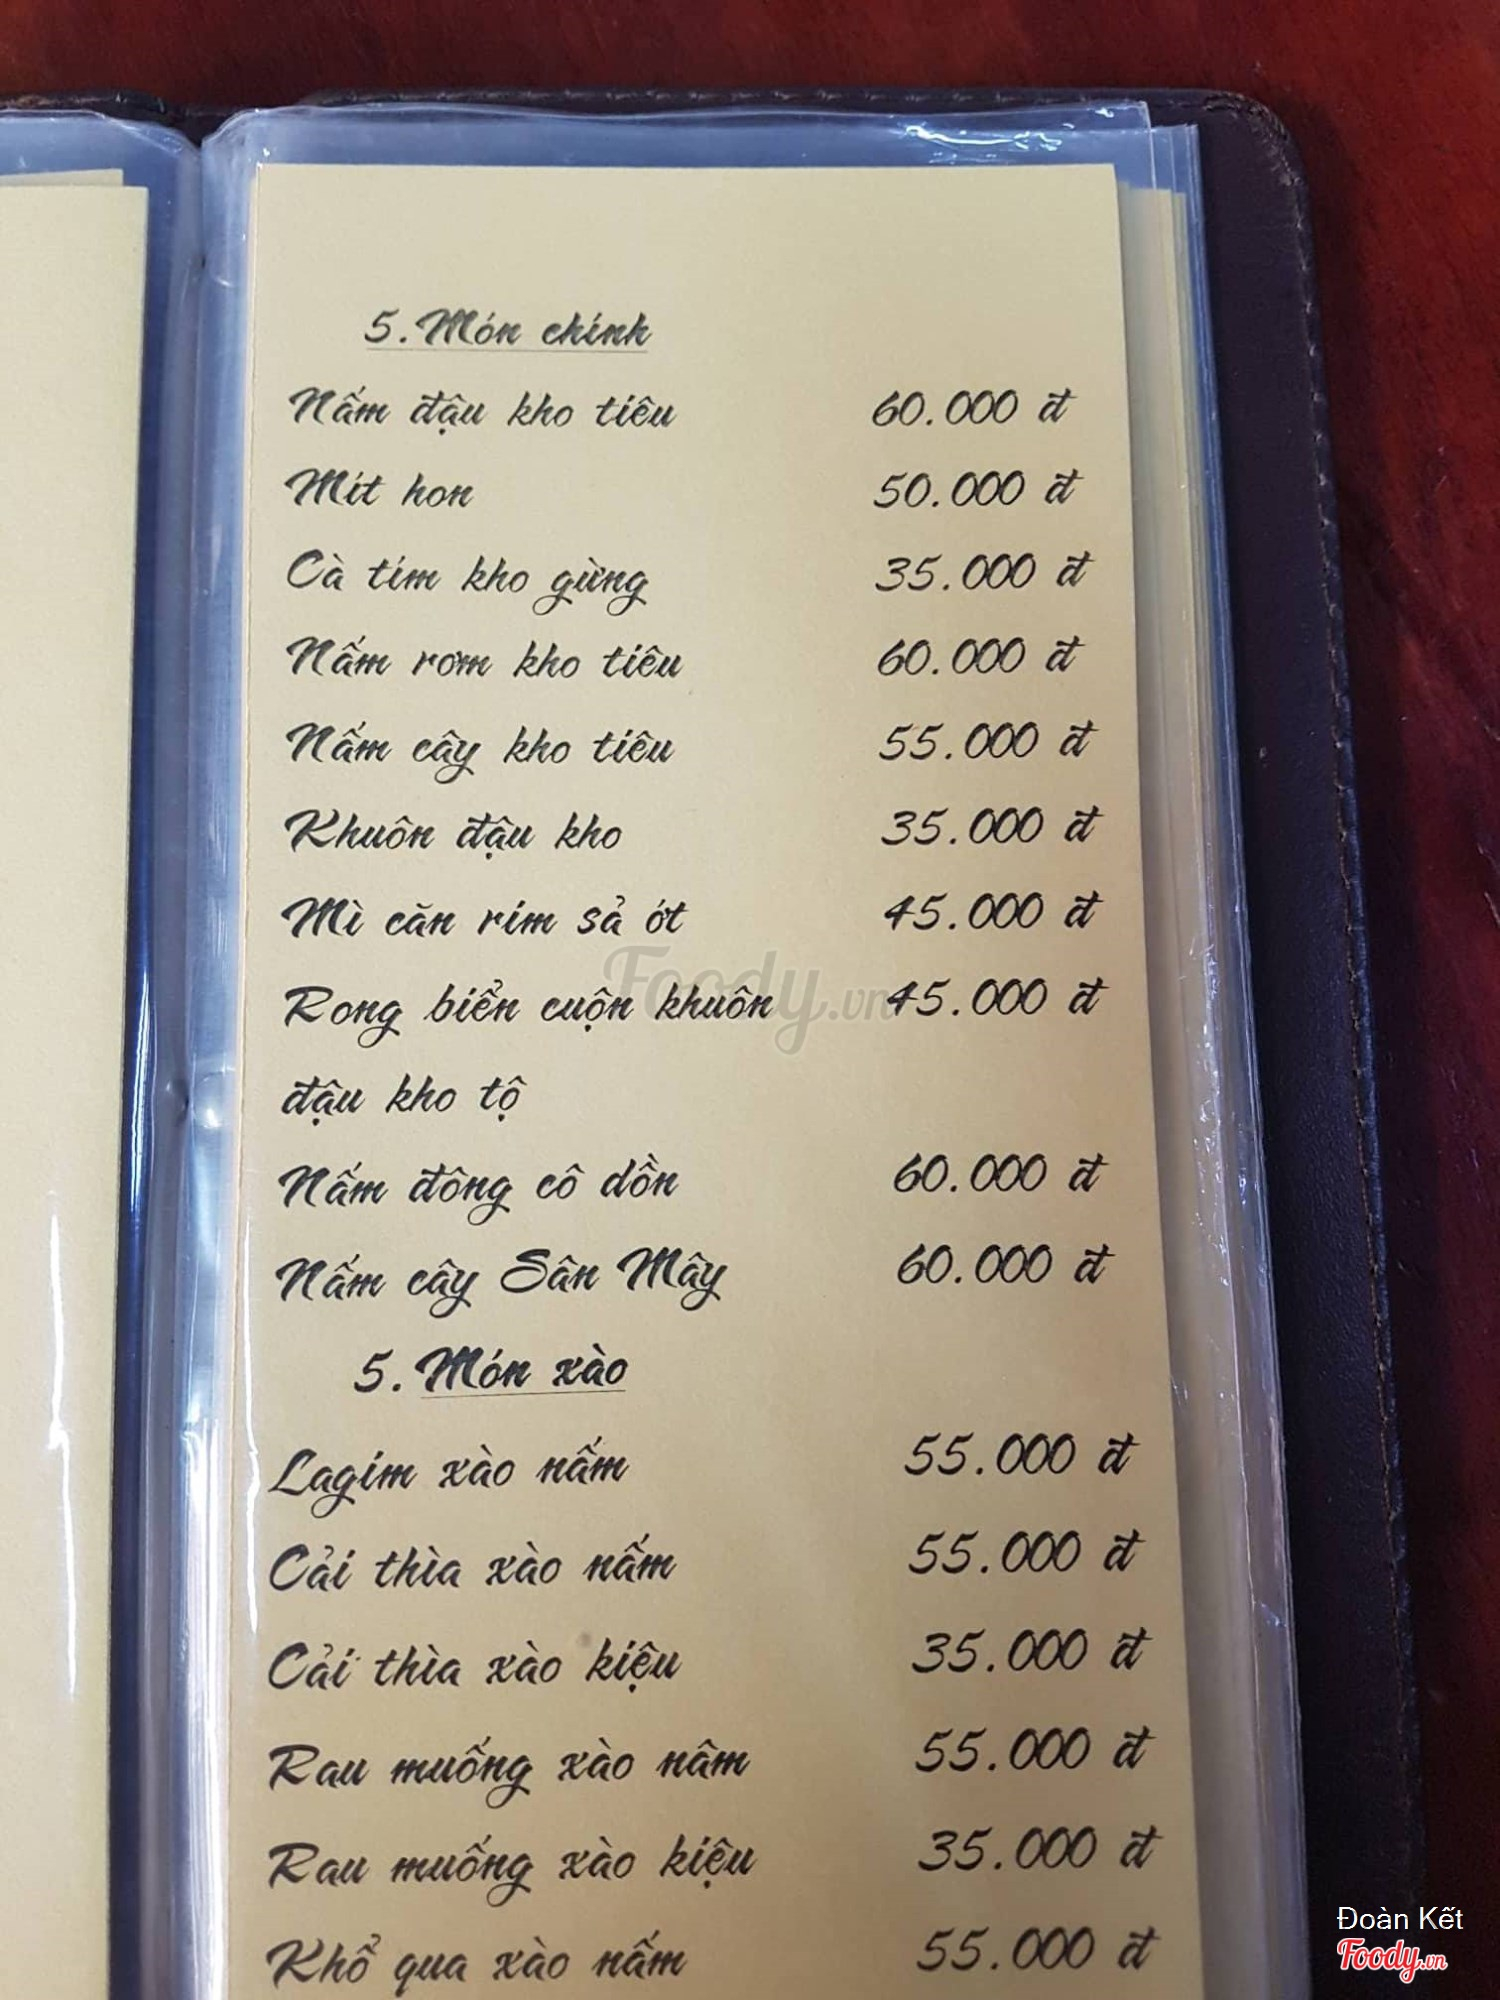 5. Món chính
Nấm đậu kho tiêu 60.000 đ
Mít hon 50.000 đ
Cà tím kho gừng 35.000 đ
Nấm rơm kho tiêu 60.000 đ
Nấm cây kho tiêu 55.000 đ
Khuôn đậu kho 35.000 đ
Mì căn rim sả ớt 45.000 đ
Rong biển cuộn khuôn 45.000 đ
đậu kho tộ
Nấm đông cô dồn 60.000 đ
Nấm cây Sân Mây 60.000 đ
5. Món xào
Lagim xào nấm 55.000 đ
Cải thìa xào nấm 55.000 đ
Cải thìa xào kiệu 35.000 đ
Rau muống xào nâm 55.000 đ
Rau muống xào kiệu 35.000 đ
Khổ qua xào nấm 55.000 đ
Foody.vn
Đoàn Kết
Foody.vn